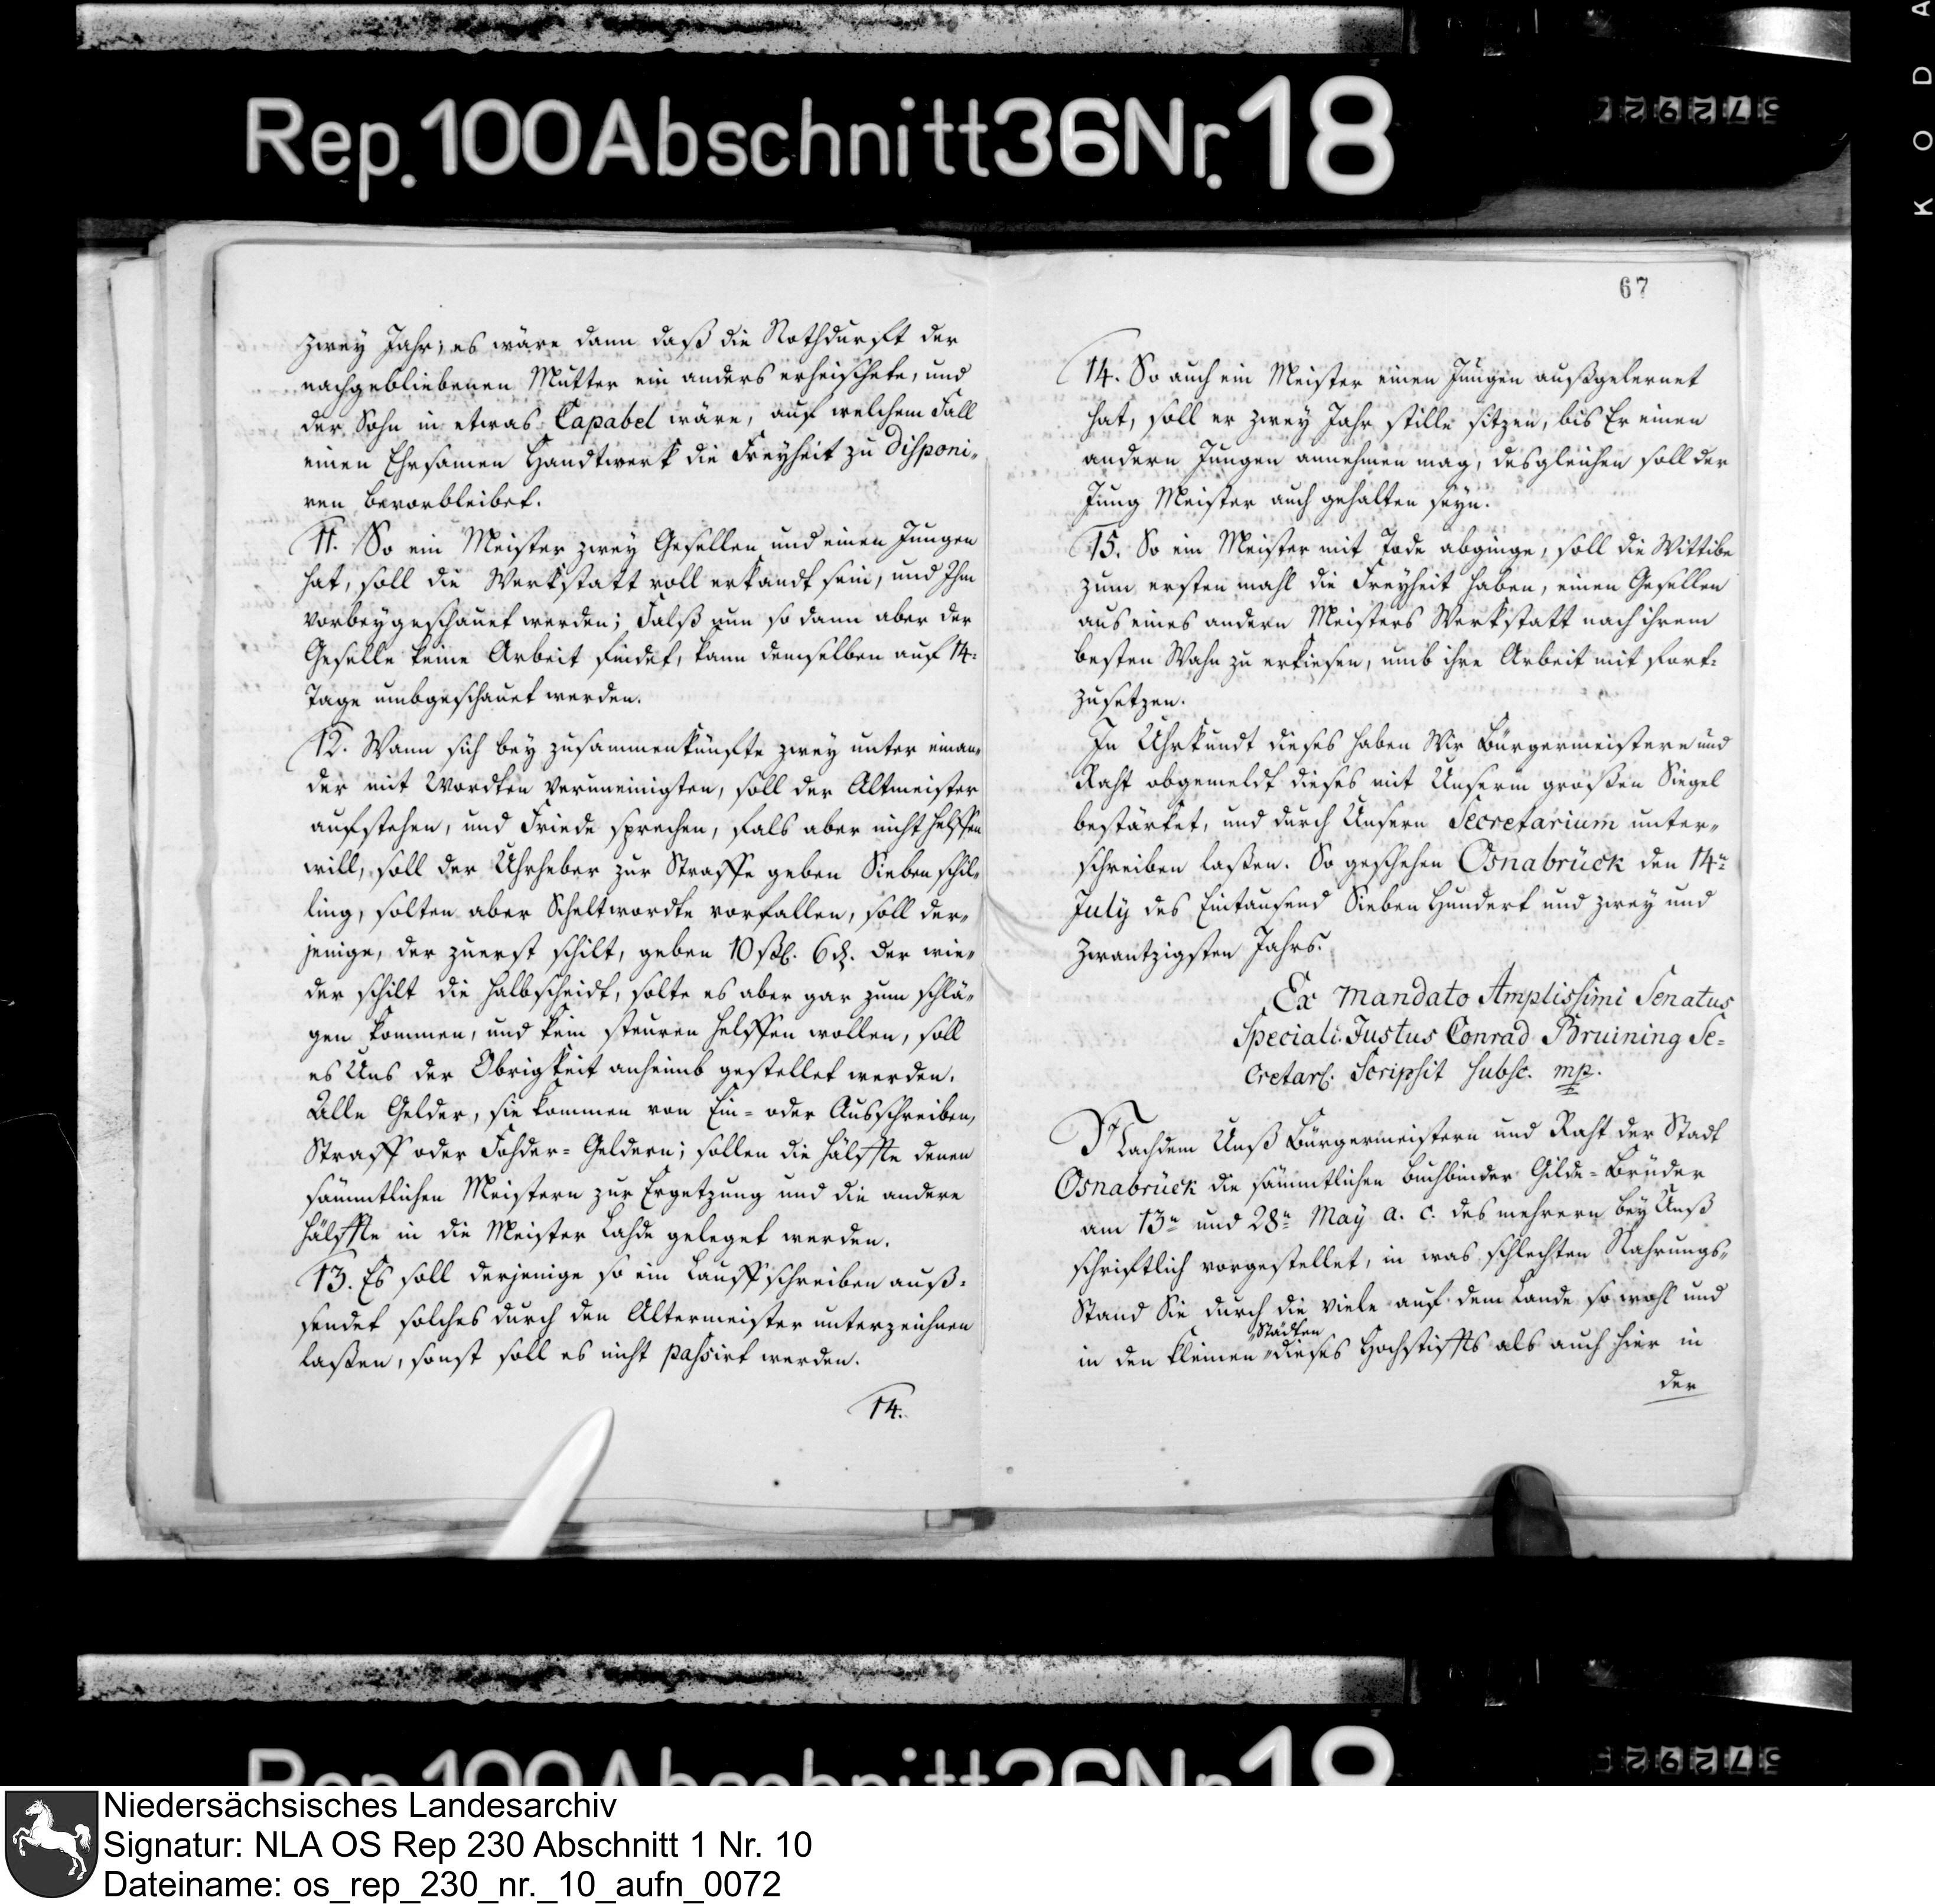 Rep. 100 Abschnitt 36 Nr. 18
67
zwey Jahr; es wäre dann daß die Nothdurft der
nachgebliebenen Mutter ein anders erheischete, und
der Sohn in etwas Capabel wäre, auf welchem Fall
einen Ehrsamen Handtwerk die Freyheit zu disponi„
ren bevorbleibet.
11. So ein Meister zwey Gesellen und einen Jungen
hat, soll die Werkstatt voll erkandt sein, und Ihm
vorbeygeschauet werden; Falß nun so dann aber der
Geselle keine Arbeit findet, kann demselben auf 14:
Tage umbgeschauet werden.
12. Wann sich bey zusammenkünfte zwey unter einan„
der mit Wordten veruneinigten, soll der Altmeister
aufstehen, und Friede sprechen, fals aber nicht helffen
will, soll der Uhrheber zur Straffe geben Sieben schil„
ling, solten aber Scheltwordte vorfallen, soll der„
jenige, der zuerst schilt, geben 10 ßl. 6 d. der wie„
der schilt die halbscheidt, solte es aber gar zum schlä„
gen kommen, und kein steuren helffen wollen, soll
es Uns der Obrigkeit anheimb gestellet werden.
Alle Gelder, sie kommen von Ein- oder Ausschreiben,
Straff oder Fohder- Geldern; sollen die hälffte denen
sämmtlichen Meistern zur Ergetzung und die andere
hälffte in die Meister Lahde geleget werden.
13. Es soll derjenige so ein Lauff schreiben auß-
sendet solches durch den Altermeister unterzeichnen
laßen, sonst soll es nicht passirt werden.
14.
14. So auch ein Meister einen Jungen außgelernet
hat, soll er zwey Jahr stille sitzen, bis Er einen
andern Jungen annehmen mag, desgleichen soll der
Jung Meister auch gehalten seyn.
15. So ein Meister mit Tode abginge, soll die Wittibe
zum ersten mahl die Freyheit haben, einen Gesellen
aus eines andern Meisters Werkstatt nach ihrem
besten Wahn zu erkiesen, umb ihre Arbeit mit fort-
zusetzen.
In Uhrkundt dieses haben Wir Bürgermeistere und
Raht obgemeldt dieses mit Unserm großen Siegel
bestärket, und durch Unsern Secretarium unter„
schreiben laßen. So geschehen Osnabrück den 14n
July des Eintausend Sieben Hundert und zwey und
zwantzigsten Jahrs.
Ex mandato Amplissimi Senatus
Speciali Justus Conrad Bruining Se-
cretar. Scripsit subsc. mp.
Nachdem Unß Bürgermeistern und Raht der Stadt
Osnabrück die sämmtlichen Buchbinder Gilde-Brüder
am 13n und 28n May a. c. des mehrern bey Unß
schriftlich vorgestellet, in was schlechten Nahrungs„
Stand Sie durch die viele auf dem Lande so wohl und
in den kleinen Städten dieses Hochstiffts als auch hier in
der
Niedersächsisches Landesarchiv
Signatur: NLA OS Rep 230 Abschnitt 1 Nr. 10
Dateiname: os_rep_230_nr._10_aufn_0072